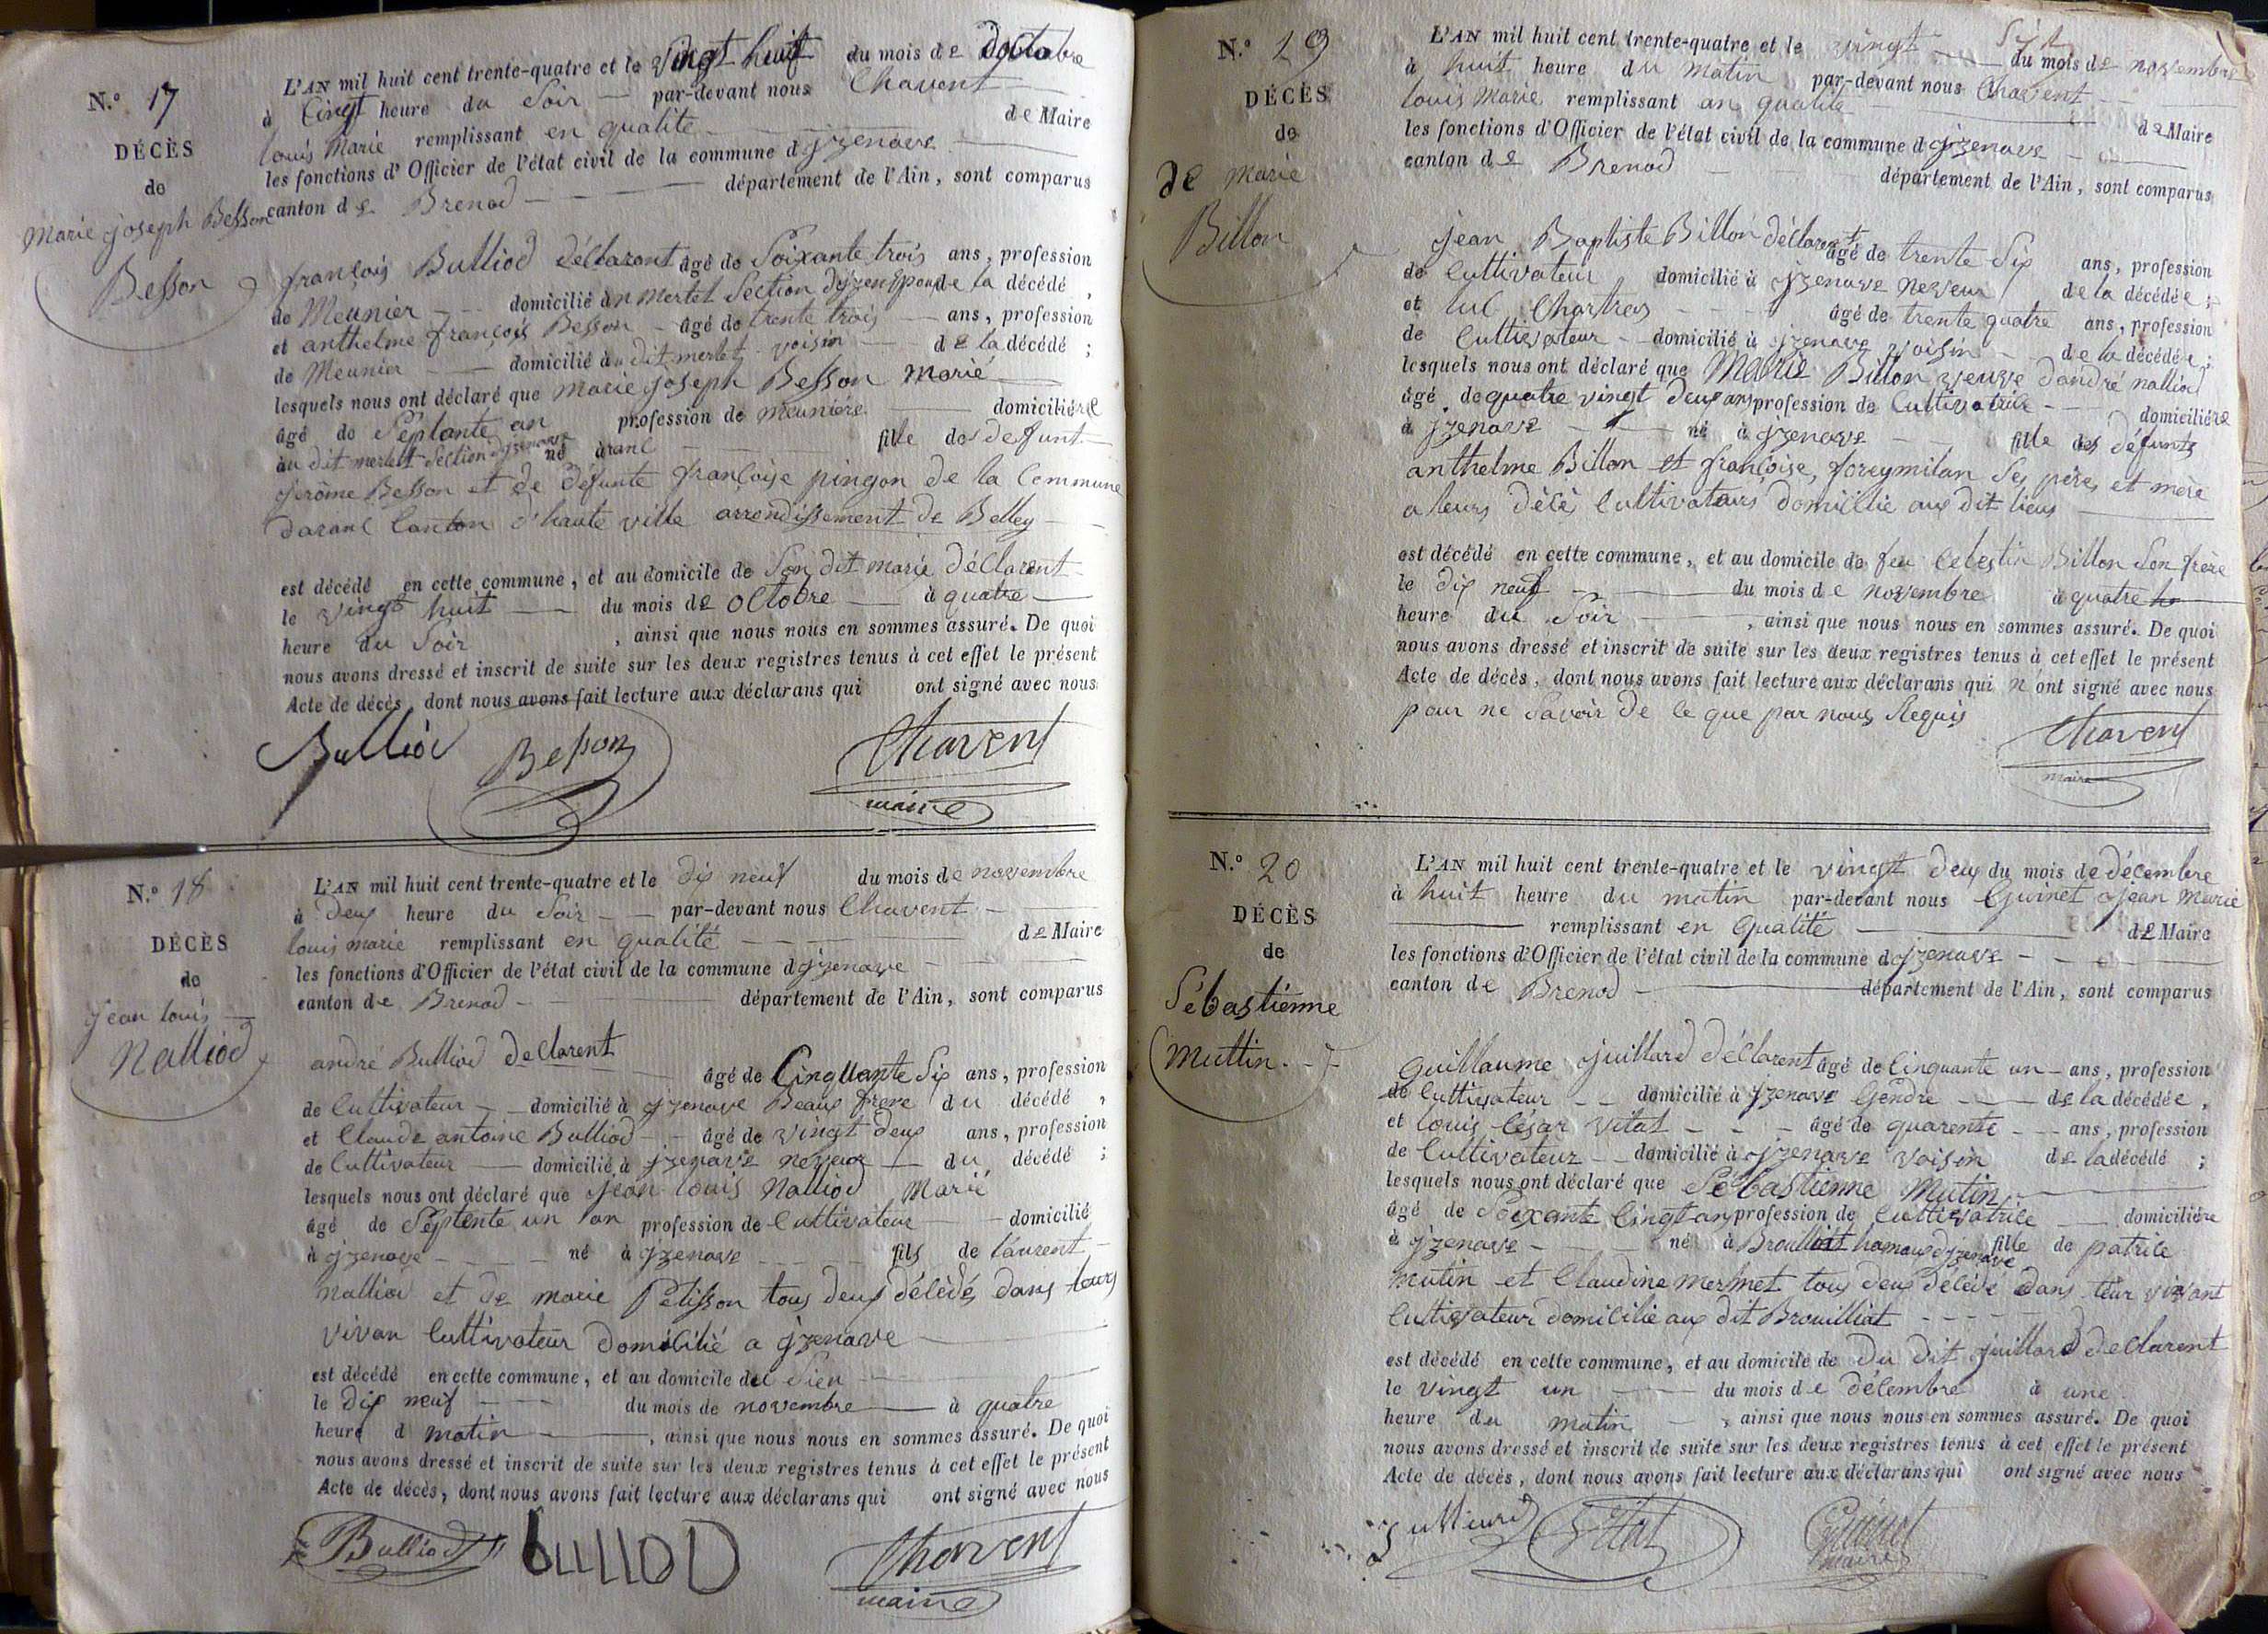 N.° 17
DÉCÈS
de
marie joseph Besson
Besson
L'AN mil huit cent trente-quatre et le vingt huit du mois de octobre
à Cinqt heure du Soir par-devant nous Chavent
louis Marie remplissant en qualité de Maire
les fonctions d'Officier de l'état civil de la commune d jzenave
canton de Brenod département de l'Ain, sont comparus
françois Bulliod déclarent âgé de Soixante trois ans, profession
de Meunier domicilié au mertel Section de la décédé,
et anthelme françois Besson âgé de trente trois ans, profession
de Meunier domicilié au dit merlet voisin de la décédé;
lesquels nous ont déclaré que marie joseph Besson Marié
âgé de Septante an profession de meuniére domiciliére
au dit merlet Section djzenave né àranc fille de defunt
jérôme Besson et de défunte françoise pingon de la Commune
daranc Canton d'haute ville arrondissement de Belley
est décédé en cette commune, et au domicile de Son dit marie déClarent
le vingt huit du mois de octobre à quatre
heure du Soir, ainsi que nous nous en sommes assuré. De quoi
nous avons dressé et inscrit de suite sur les deux registres tenus à cet effet le présent
Acte de décès, dont nous avons fait lecture aux déclarans qui ont signé avec nous
Bulliod Besson Chavent
maire
N.° 18
DÉCÈS
de
jean louis
Nalliod
L'AN mil huit cent trente-quatre et le dix neuf du mois de novembre
à deux heure du Soir par-devant nous Chavent
louis marie remplissant en qualité de Maire
les fonctions d'Officier de l'état civil de la commune d jzenave
canton de Brenod département de l'Ain, sont comparus
andré Bulliod declarent âgé de Cinquante Six ans, profession
de Cultivateur domicilié à jzenave Beaux frere du décédé,
et Claude antoine Bulliod âgé de vingt deux ans, profession
de Cultivateur domicilié à jzenave neveux du décédé;
lesquels nous ont déclaré que jean louis Nalliod Marié
âgé de Septente un an profession de Cultivateur domicilié
à jzenave né à jzenave fils de laurent
nalliod et de marie Pelisson tous deux décédés dans leurs
vivan Cultivateur domicilié a jzenave
est décédé en cette commune, et au domicile du Sien
le dix neuf du mois de novembre à quatre
heure d matin, ainsi que nous nous en sommes assuré. De quoi
nous avons dressé et inscrit de suite sur les deux registres tenus à cet effet le présent
Acte de décès, dont nous avons fait lecture aux déclarans qui ont signé avec nous
Bulliod buLLiOD Chavent
maire
N.° 19
DÉCÈS
de
de marie
Billon
L'AN mil huit cent trente-quatre et le vingt du mois de novembre
à huit heure du matin par-devant nous Chavent
louis Marie remplissant an qualité de Maire
les fonctions d'Officier de l'état civil de la commune d jzenave
canton de Brenod département de l'Ain, sont comparus
jean Baptiste Billon déclarent âgé de trente Six ans, profession
de Cultivateur domicilié à jzenave neveux de la décédée;
et luc Chartres âgé de trente quatre ans, profession
de Cultivateur domicilié à jzenave voisin de la décédée;
lesquels nous ont déclaré que Marie Billon veuve dandré nalliod
âgé de quatre vingt deux ans profession de Cultivatrice domiciliére
à jzenave né à jzenave fille des défunts
anthelme Billon et françoise, foreymilan Ses pères et mère
a leurs décé Cultivateurs domicilie aux dit lieux
est décédé en cette commune, et au domicile de feu Celestin Billon Son frère
le dix neuf du mois de novembre à quatre
heure du Soir, ainsi que nous nous en sommes assuré. De quoi
nous avons dressé et inscrit de suite sur les deux registres tenus à cet effet le présent
Acte de décès, dont nous avons fait lecture aux déclarans qui n'ont signé avec nous
pour ne Savoir de ce que par nous Requis
Chavent
maire
N.° 20
DÉCÈS
de
Sébastiénne
Muttin
L'AN mil huit cent trente-quatre et le vingt deux du mois de décembre
à huit heure du matin par-devant nous Guinet jean Marie
remplissant en qualité de Maire
les fonctions d'Officier de l'état civil de la commune d jzenave
canton de Brenod département de l'Ain, sont comparus
Guillaume juillard déclarent âgé de Cinquante un ans, profession
de Cultivateur domicilié à jzenave Gendre de la décédée,
et louis César vitat âgé de quarente ans, profession
de Cultivateur domicilié à jzenave voisin de la décédé;
lesquels nous ont déclaré que Sébastienne Mutin
âgé de Soixante Cinqt an profession de Cultivatrice domiciliére
à jzenave né à Brouilliat hamaux djzenave fille de patrice
mutin et Claudine mermet tous deux décédé dans leur vivant
Cultivateur domicilie aux dit Brouilliat
est décédé en cette commune, et au domicile de du dit juillard declarent
le vingt un du mois de décembre à une
heure du matin, ainsi que nous nous en sommes assuré. De quoi
nous avons dressé et inscrit de suite sur les deux registres tenus à cet effet le présent
Acte de décès, dont nous avons fait lecture aux déclarans qui ont signé avec nous
juilliard Vitat Guinet
maire